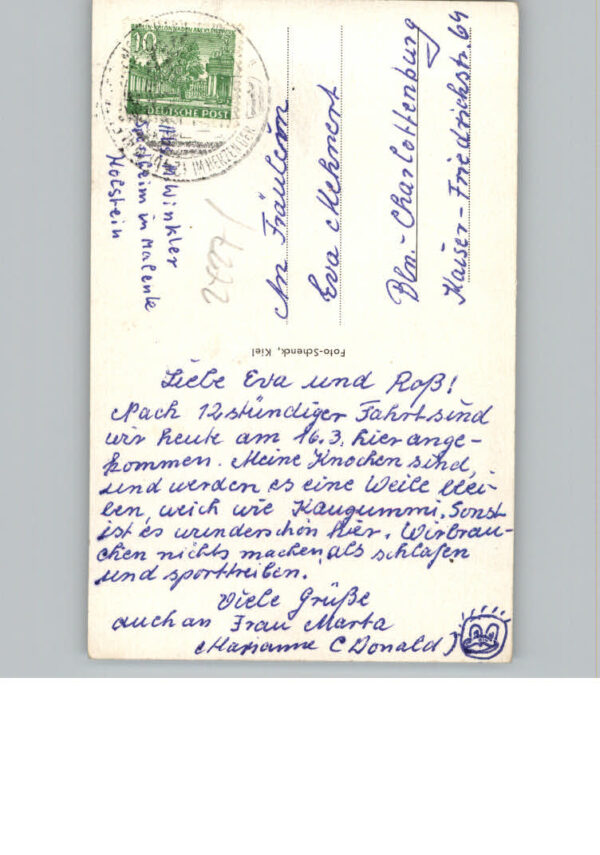 10
DEUTSCHE POST
IM HERZEN DER
Winkler
in Malente
Holstein
An Fräulein
Eva Mehnert
Bln.-Charlottenburg
Kaiser-Friedrichstr. 64
Foto-Schenck, Kiel
Liebe Eva und Roß!
Nach 12stündiger Fahrt sind
wir heute am 16.3. hier ange-
kommen. Meine Knochen sind,
und werden es eine Weile blei-
ben, weich wie Kaugummi. Sonst
ist es wunderschön hier. Wir brau-
chen nichts machen, als schlafen
und sporttreiben.
Viele Grüße
auch an Frau Marta
Marianne (Donald)